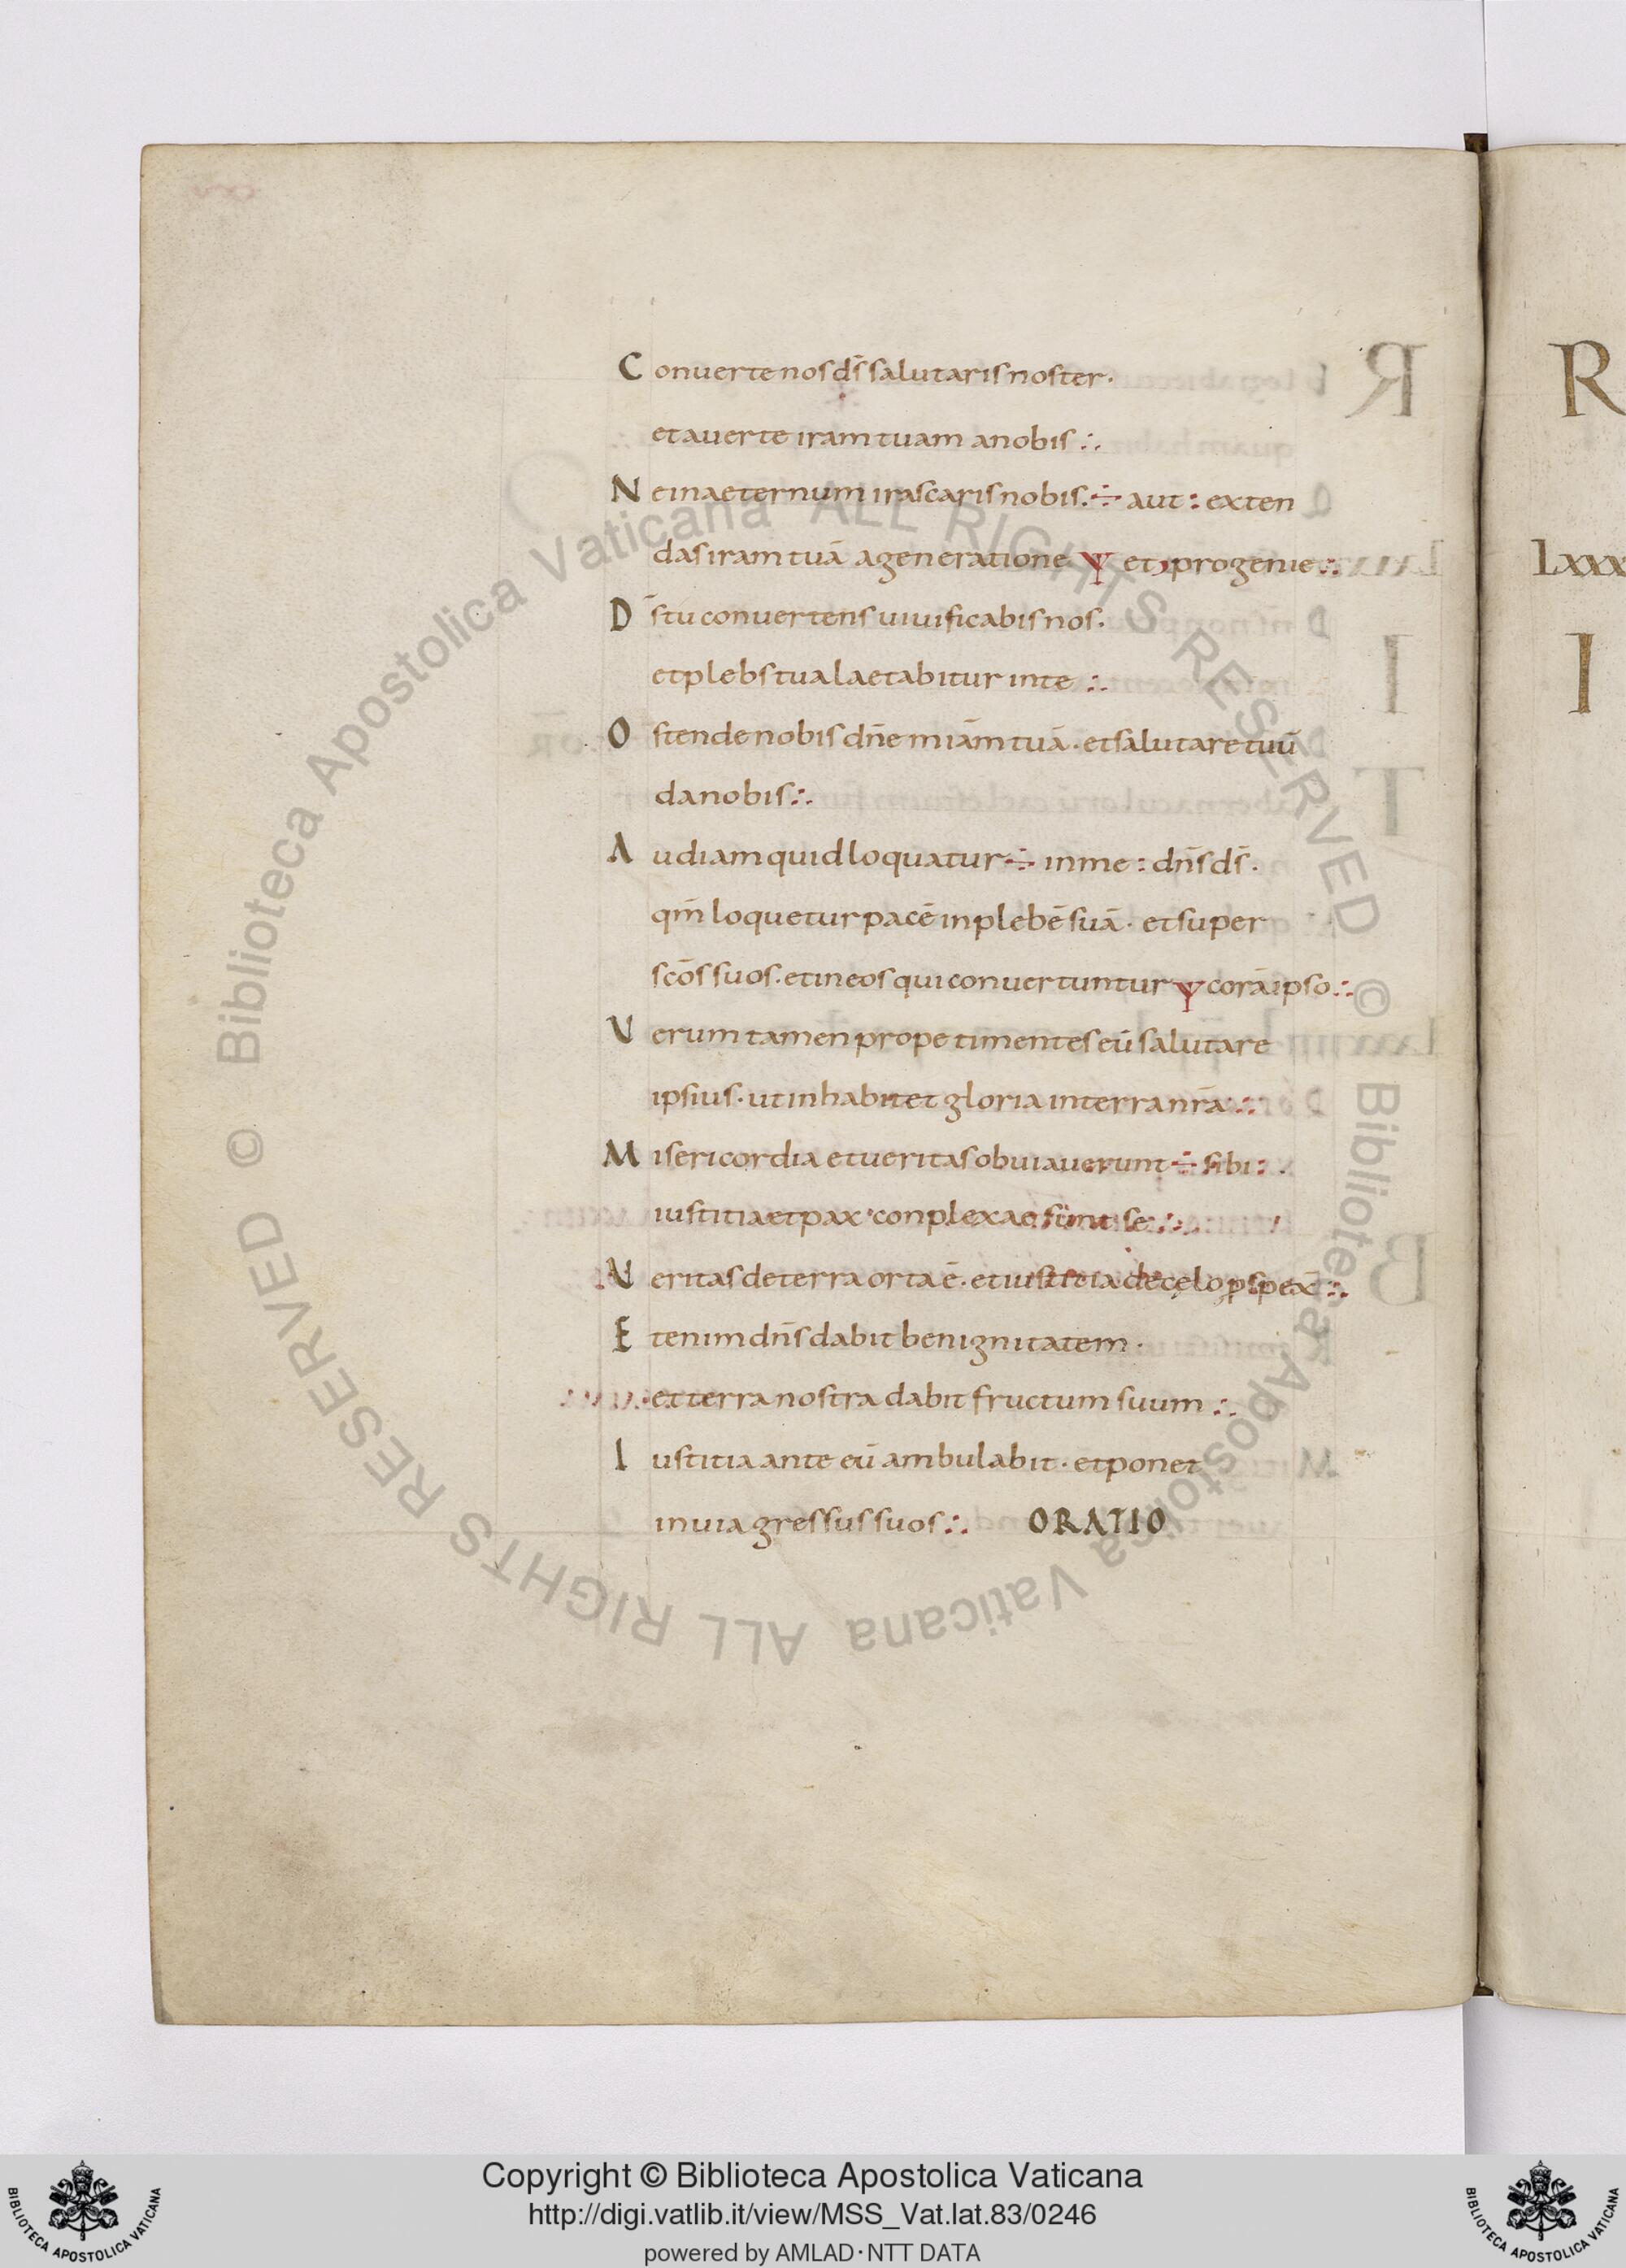 Conuerte nos d̄s salutaris noster·
et auerte iram tuam a nobis ∴
Ne in aeternum irascaris nobis· ÷ aut : exten
das iram tuā a generatione Ψ et progenie ∴
D̄s tu conuertens uiuificabis nos·
et plebs tua laetabitur in te ∴
Ostende nobis dn̄e miām tuā· et salutare tuū
da nobis ∴
Audiam quid loquatur ÷ in me : dn̄s d̄s·
qm̄ loquetur pacē in plebē suā· et super
scōs suos· et in eos qui conuertuntur Ψ corā ipso ∴
Uerum tamen prope timentes eū salutare
ipsius· ut inhabitet gloria in terra nr̄a ∴
Misericordia et ueritas obuiauerunt ÷ sibi :
iustitia et pax conplexae sunt se ∴
Ueritas de terra orta ē· et iustitia de cęlo ꝑspex̄ ∴
Etenim dn̄s dabit benignitatem·
et terra nostra dabit fructum suum ∴
Iustitia ante eū ambulabit· et ponet
in uia gressus suos ∴ ORATIO
R
Lxxx
I
© Biblioteca Apostolica Vaticana ALL RIGHTS RESERVED
© Biblioteca Apostolica Vaticana ALL RIGHTS RESERVED
Copyright © Biblioteca Apostolica Vaticana
http://digi.vatlib.it/view/MSS_Vat.lat.83/0246
powered by AMLAD·NTT DATA
BIBLIOTECA APOSTOLICA VATICANA
BIBLIOTECA APOSTOLICA VATICANA